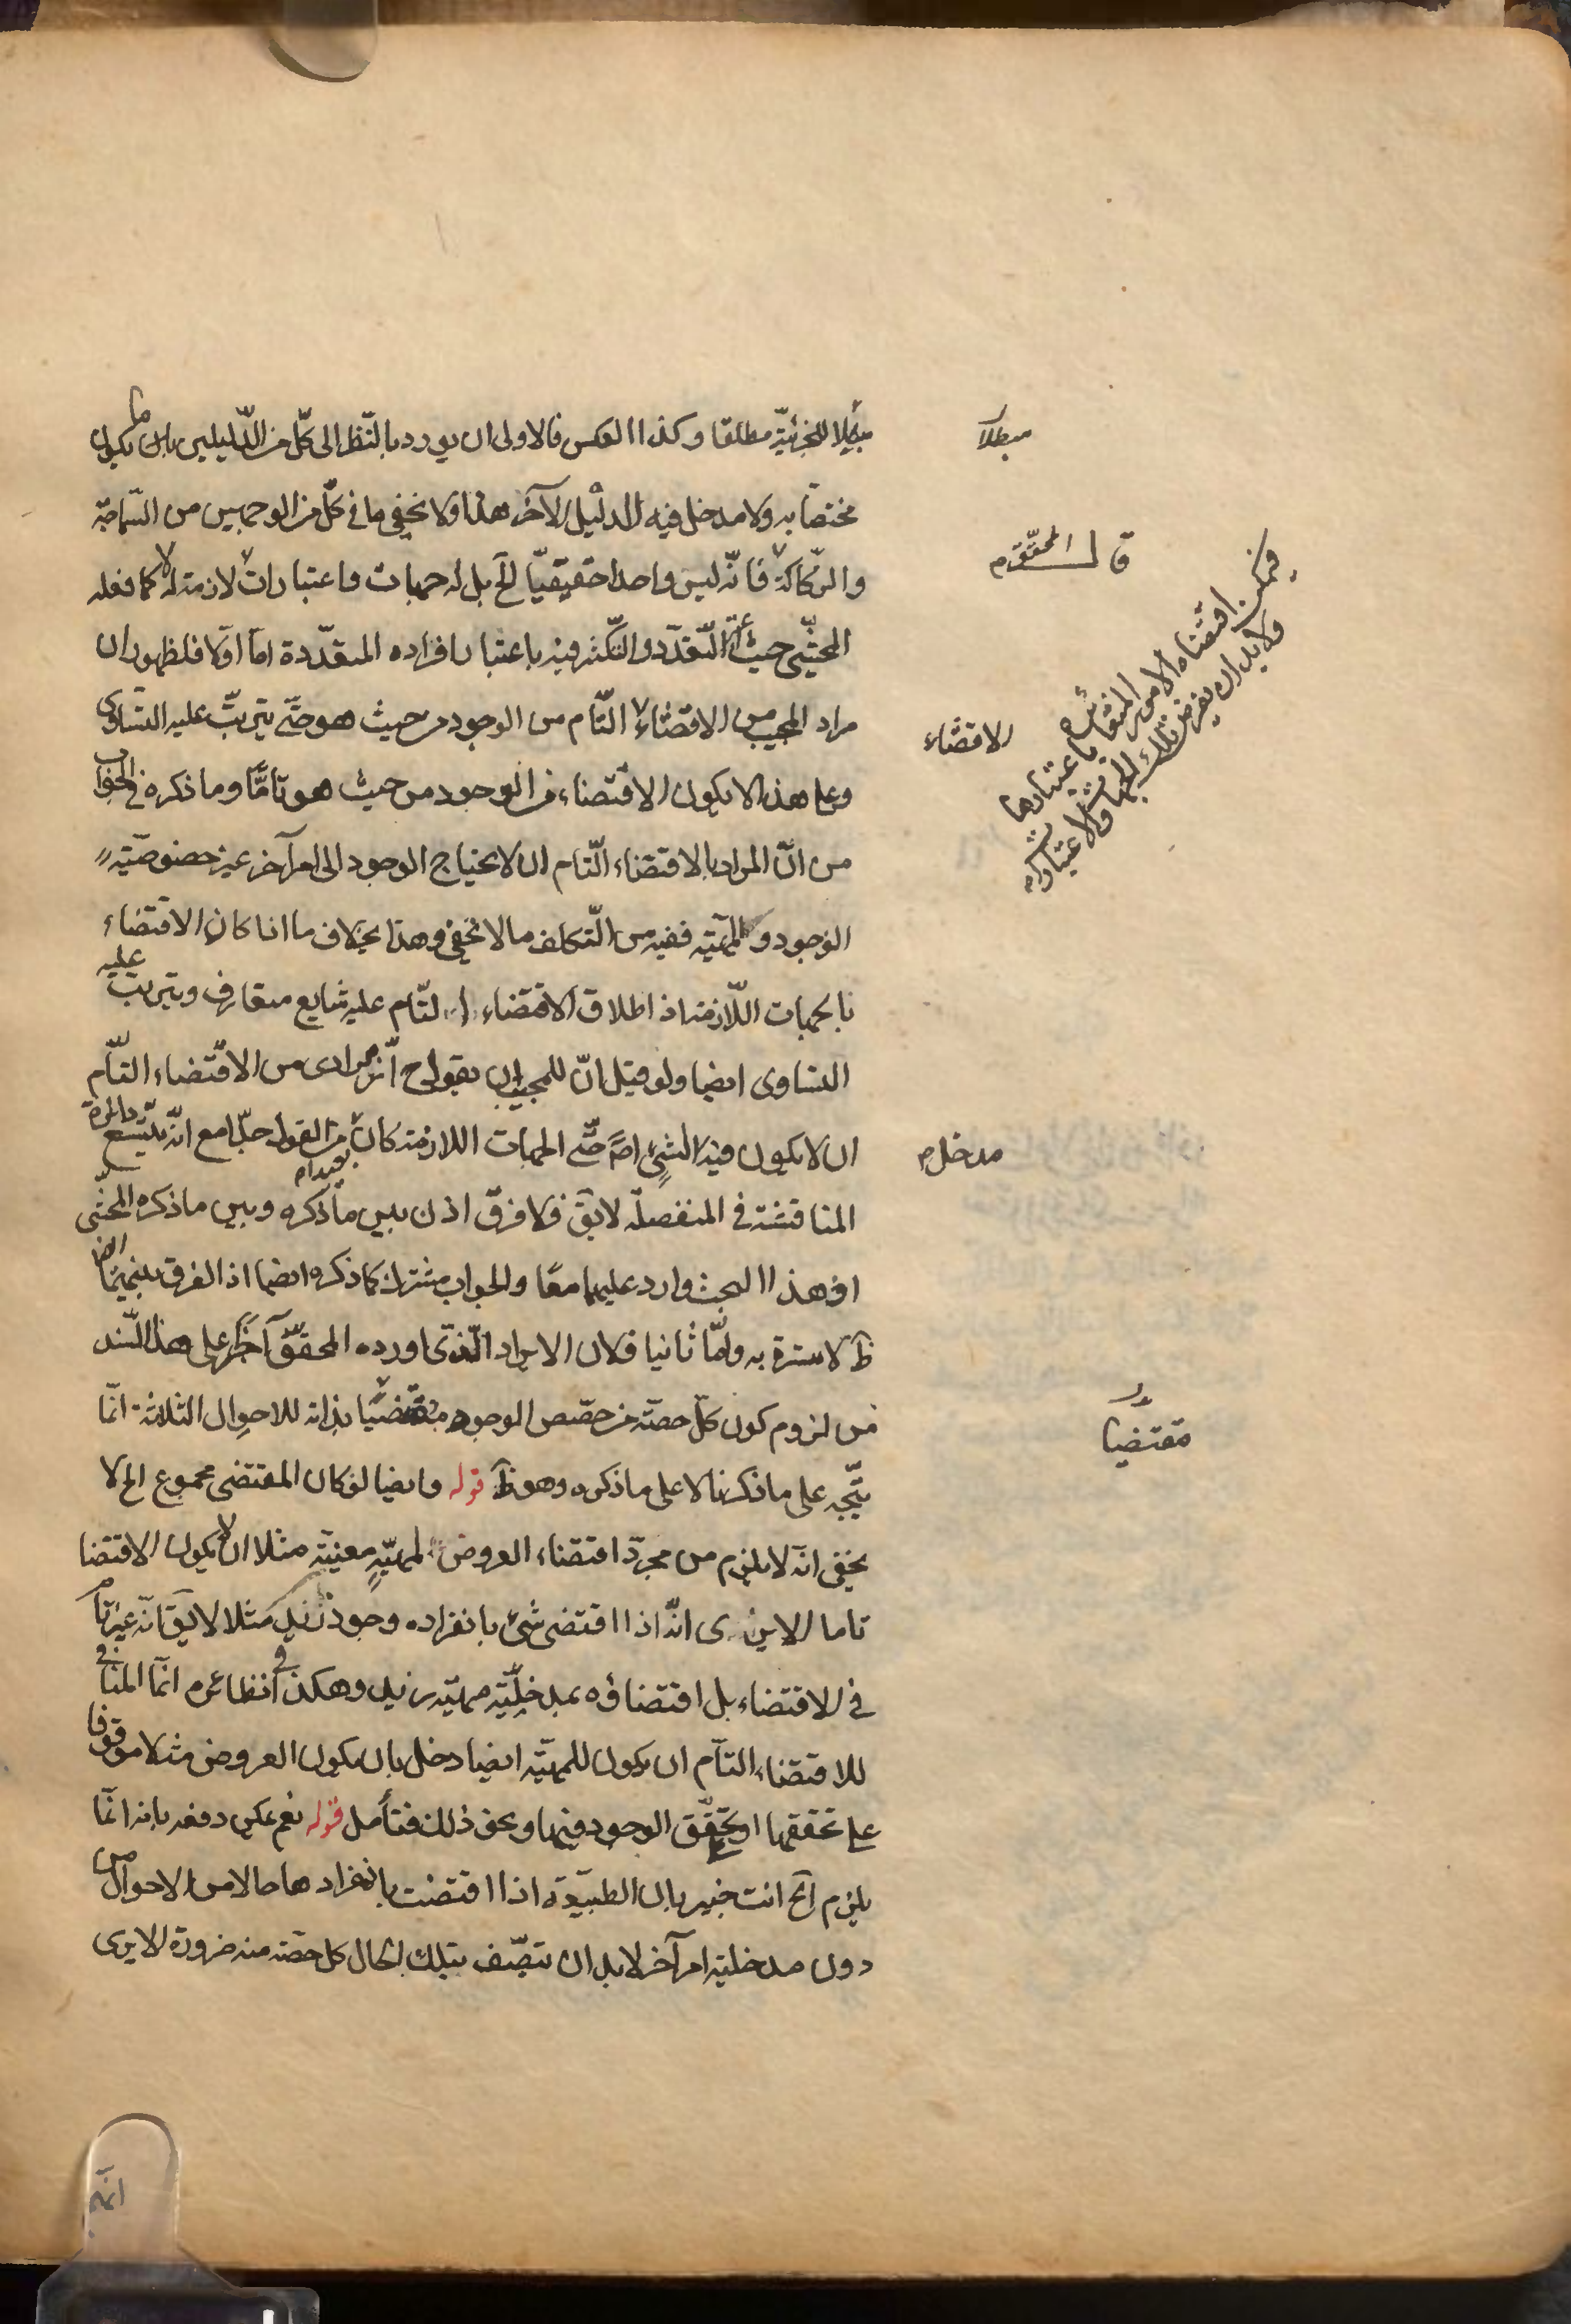 مبطلا للجزئيّة مطلقا وكذا العكس فالاولى ان يورد بالنّظر الى كلّ من الدّليلين ما يكون
مختصّا به ولا مدخل فيه للدليل الآخر هذا ولا يخفى ما في كلّ من الوجهين من السّماجة
والرّكاكة فانّه ليس واحدا حقيقيّا الخ بل له جهات واعتبارات لازمة له لا كما فعله
المحشّى حيث التّعدّد والتّكثّر فيه باعتبار افراده المتعدّدة امّا اوّلا فلظهور ان
مراد المجيب من الاقتضاء التّام من الوجود من حيث هو حتّى يترتّب عليه التساوى
وعلى هذا لا يكون الاقتضاء من الوجود من حيث هو تامّا وما ذكره في الجواب
من انّ المراد بالاقتضاء التّام ان لا يحتاج الوجود الى امر آخر غير خصوصيّة
الوجود والمهيّة ففيه من التّكلف ما لا يخفى وهذا بخلاف ما اذا كان الاقتضاء
بالجهات اللّازمة اذ اطلاق الاقتضاء التّام عليه شايع متعارف ويترتب عليه
التساوى ايضا ولو قيل انّ للمجيب ان يقول ح انّ مرادى من الاقتضاء التّام
ان لا يكون فيه لشئ اصلا حتّى الجهات اللازمة كان من القول جدّا مع انّه يتّسع دائرة
المناقشة في المنفصلة لا يق فلا فرق اذن بين ما ذكره وبين ما ذكره المحشّى
اذ هذا البحث وارد عليهما معا والجواب مشترك كما ذكره ايضا اذ الفرق بينهما ايضا
ظ لا سترة به وامّا ثانيا فلان الايراد الّذى اورده المحقّق آخرا على هذا السّند
من لزوم كون كلّ حصّة من حصص الوجود مقتضيا بذاته للاحوال الثلاثة انّما
يتّجه على ما ذكرنا لا على ما ذكره وهو ظ قوله وايضا لو كان المقتضى مجموع الخ لا
يخفى انّه لا يلزم من مجرّد اقتضاء العروض لمهيّة معيّنة مثلا ان لا يكون الاقتضا
تاما الا يرى انّه اذا اقتضى شئ بانفراده وجود زيد مثلا لا يق انّه غير تام
في الاقتضاء بل اقتضاؤه بمدخليّة مهيّة زيد وهكذا في نظائره انّما المنافى
للاقتضاء التّام ان يكون للمهيّة ايضا دخل بان يكون العروض مثلا موقوفا
على تحققها او تحقّق الوجود فيها ونحو ذلك فتأمل قوله نعم يمكن دفعه بانه انّما
يلزم الخ انت خبير بان الطبيعة اذا اقتضت بانفرادها حالا من الاحوال من
دون مدخلية امر آخر لا بد ان تتّصف بتلك الحال كل حصّة منه ضرورة الا يرى
مبطلا
قال المحقق
فيمكن اقتضاء الامور المتقابلة باعتبارها
ولا بد ان يفرض تلك الجهات والاعتبارات
الاقتضاء
مدخل
مقتضيا
انّه